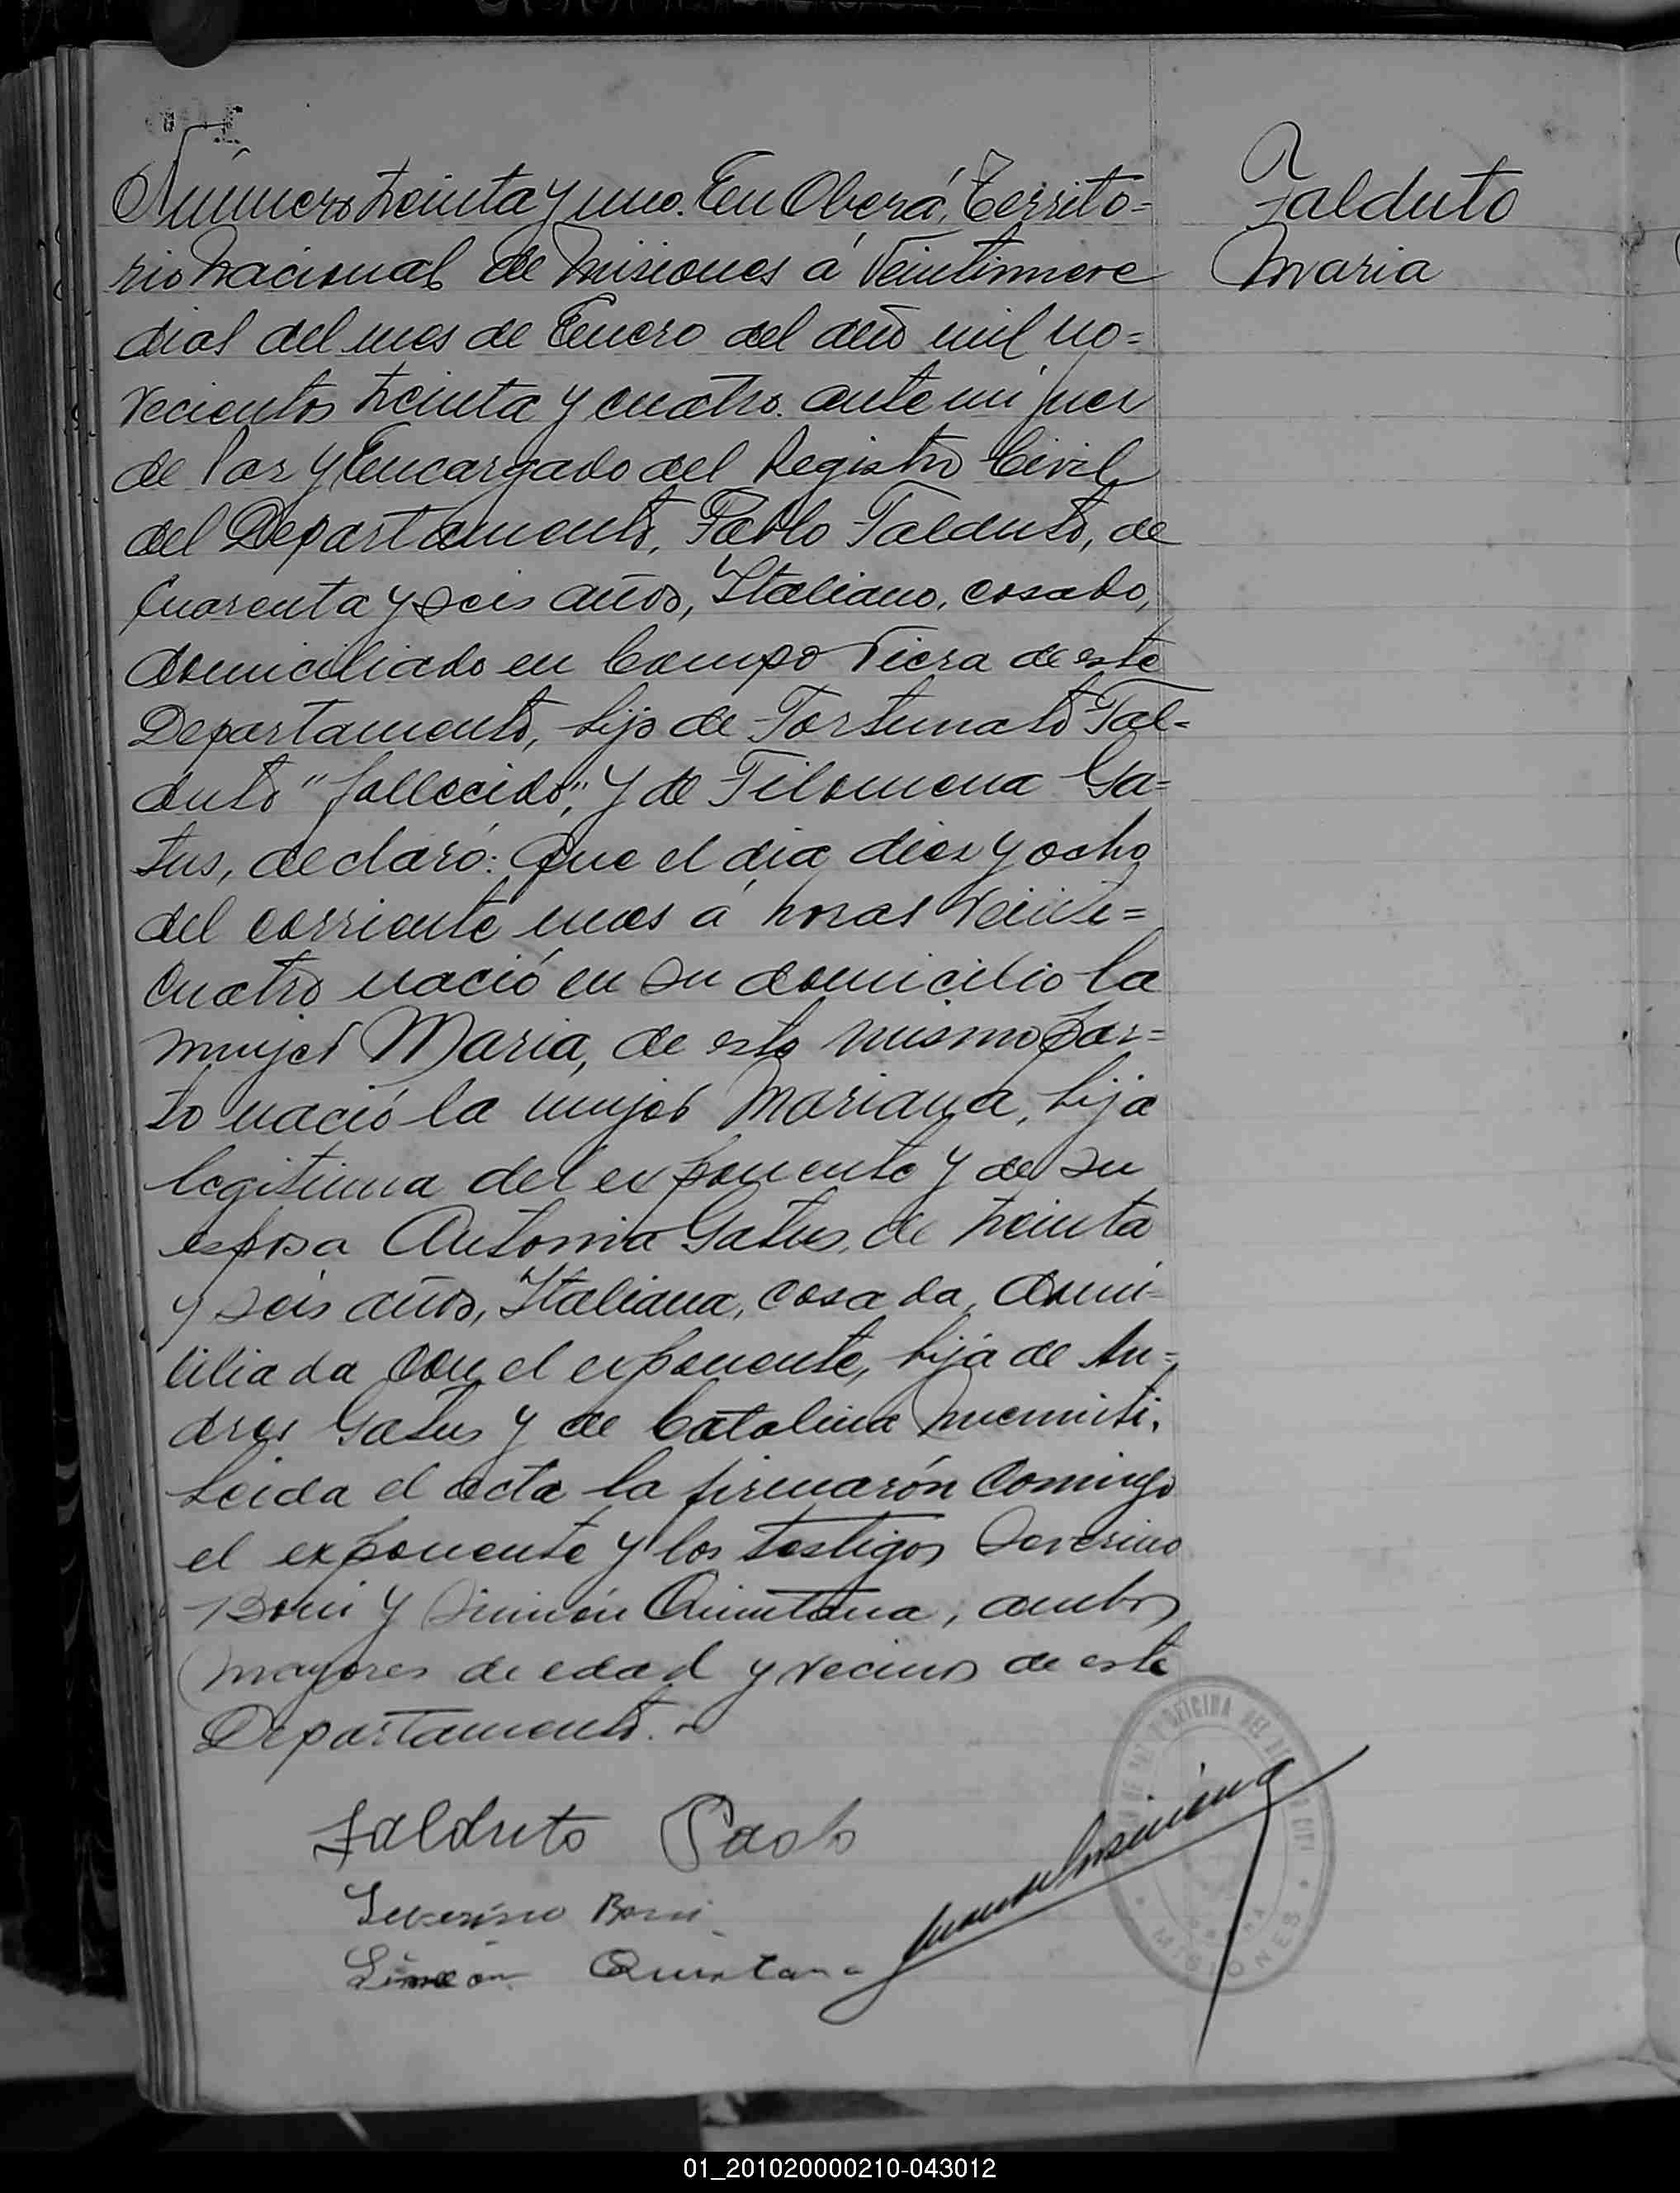 Número treinta y uno. En Oberá, Territo=
rio Nacional de Misiones á veintinueve
dias del mes de Enero del año mil no=
vecientos treinta y cuatro. ante mi Juez
de Paz y Encargado del Registro Civil
del Departamento, Pablo Falduto, de
cuarenta y seis años, Italiano, casado,
domiciliado en Campo Viera de este
Departamento, hijo de Fortunato Fal=
duto "fallecido", y de Filomena Ga=
tus, declaró: Que el dia diez y ocho
del corriente mes á horas veinte=
cuatro nació en su domicilio la
mujer Maria, de este mismo par=
to nació la mujer Mariana, hija
legitima del exponente y de su
esposa Antonia Gatus, de treinta
y seis años, Italiana, casada, domi=
ciliada con el exponente, hija de An=
dres Gatus y de Catalina
Leida el acta la firmarón conmigo
el exponente y los testigos Severino
Boni y Simión Quintana, ambos
mayores de edad y vecinos de este
Departamento.-
Falduto
Maria
Falduto Paolo
Severino Boni
Simeón Quintana
OFICINA DEL
MISIONES
01_201020000210-043012